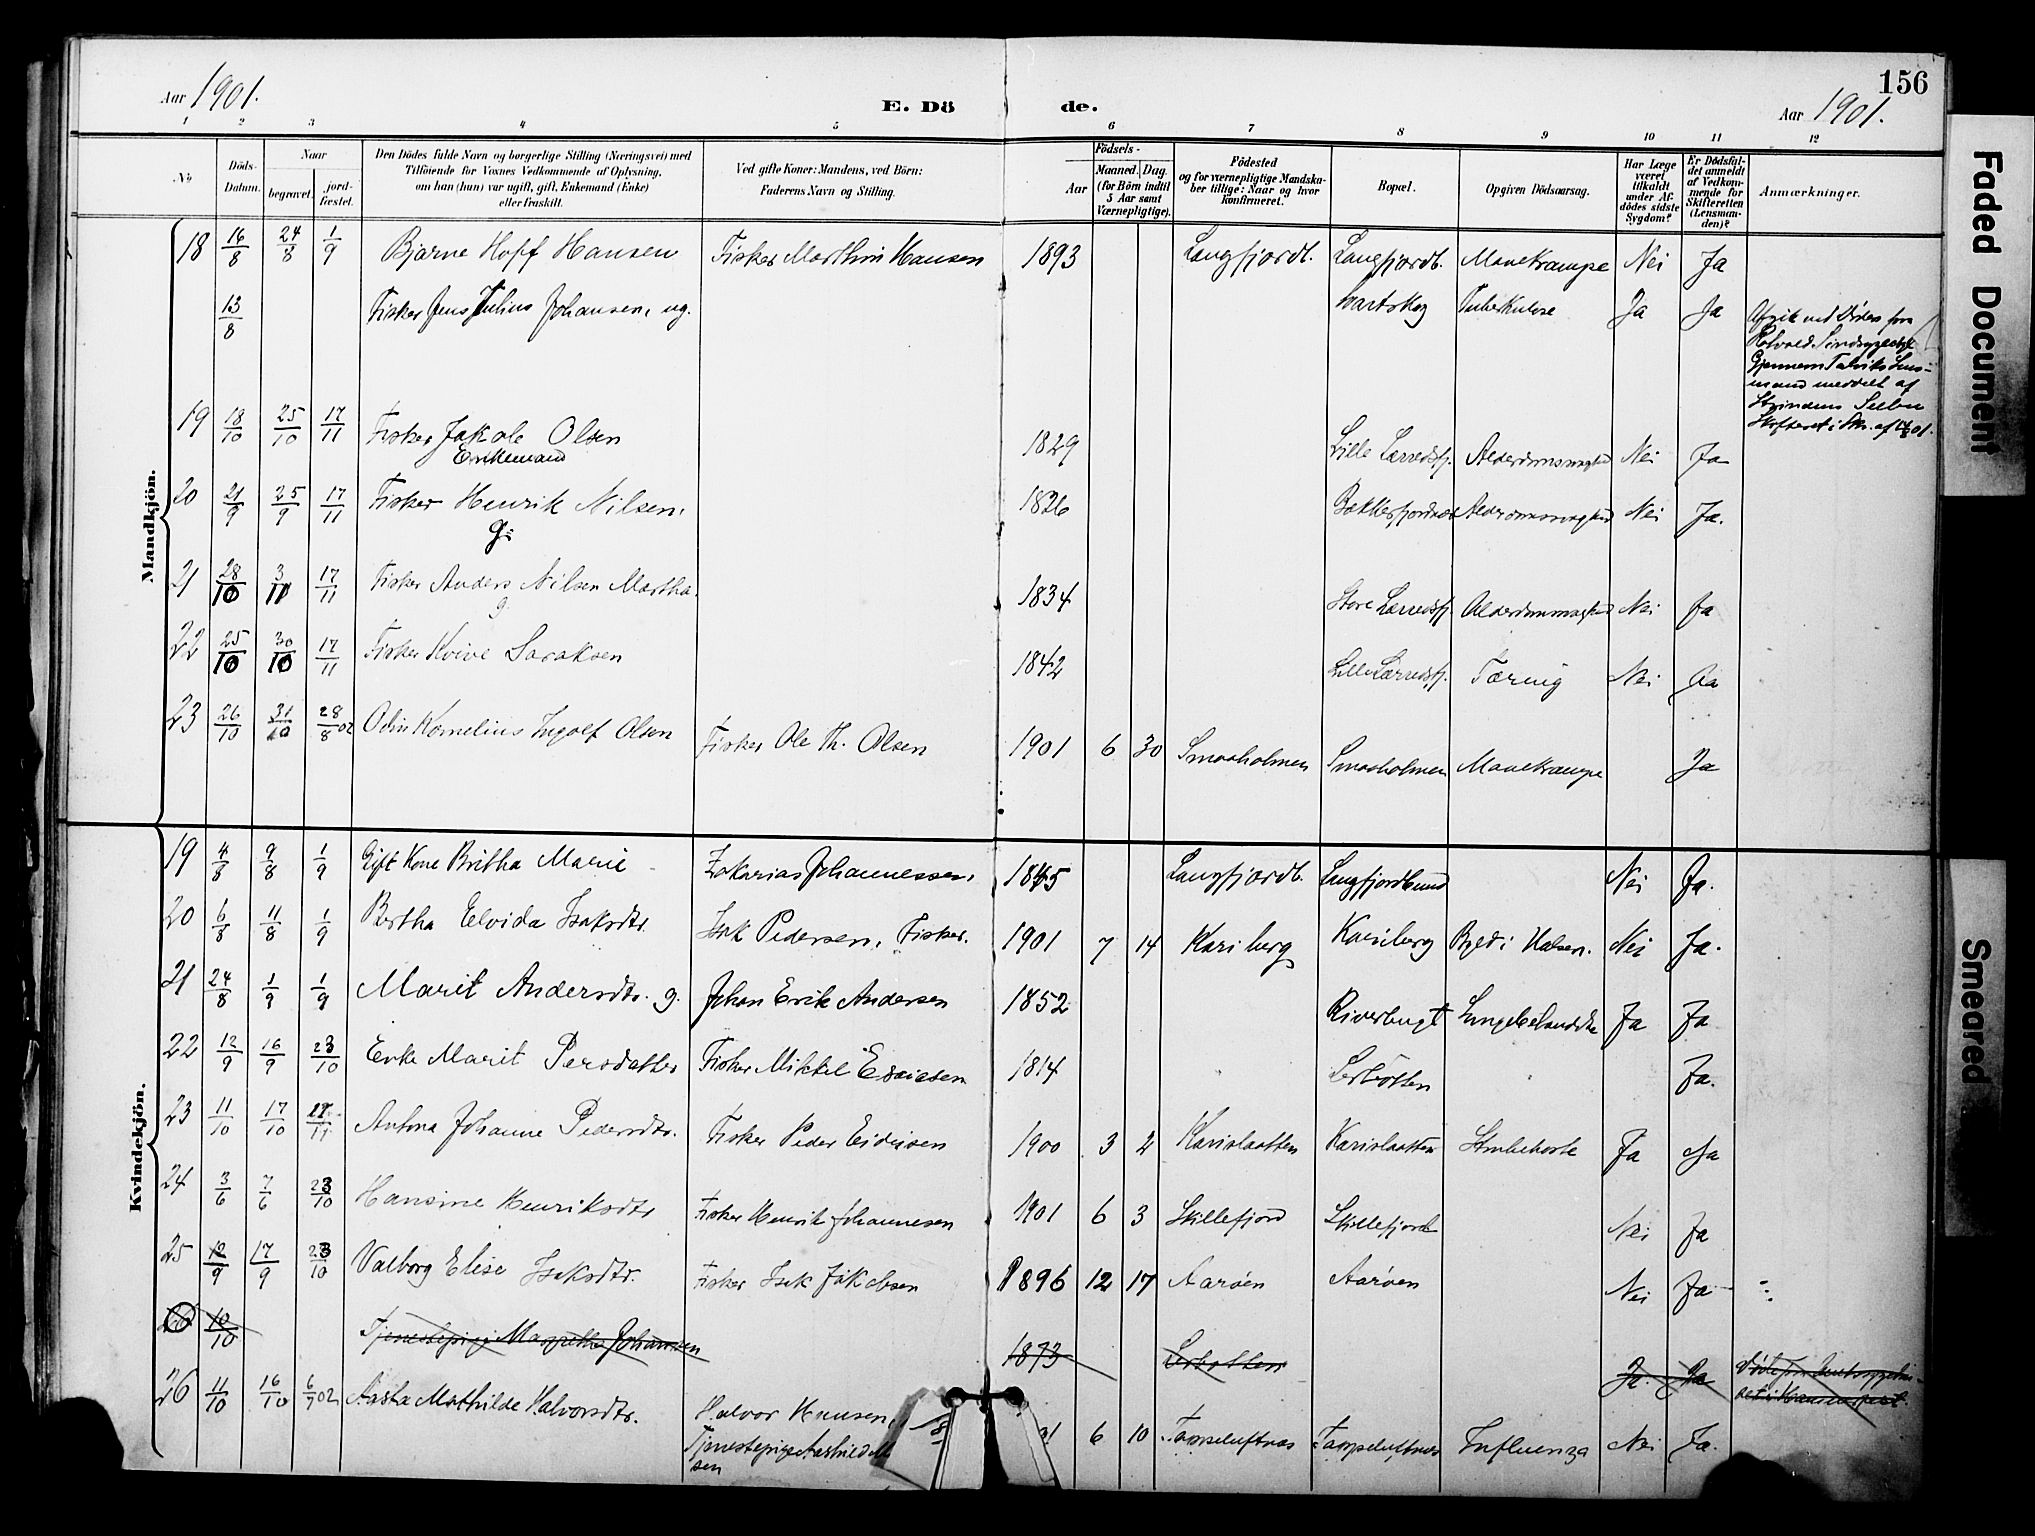 156
Aar 1901.
E. Dö de.
Aar 1901.
1 2 3 4 5 6 7 8 9 10 11 12
No
Döds-Datum.
Naar
begravet.
jord-fæstet.
Den Dödes fulde Navn og borgerlige Stilling (Næringsvei) med
Tilföiende for Voxnes Vedkommende af Oplysning,
om han (hun) var ugift, gift, Enkemand (Enke)
eller fraskilt.
Ved gifte Koner: Mandens, ved Börn:
Faderens Navn og Stilling.
Födsels-
Aar
Maaned. Dag.
(for Börn indtil
5 Aar samt
Værnepligtige).
Födested
og for værnepligtige Mandska-
ber tillige: Naar og hvor
konfirmeret.
Bopæl.
Opgiven Dödsaarsag.
Har Læge
været
tilkaldt
under Af-
dödes sidste
Sygdom?
Er Dödsfal-
det anmeldt
af Vedkom-
mende for
Skifteretten
(Lensman-
den)?
Anmærkninger.
Mandkjön.
18 16/8 24/8 1/9 Bjarne Hopf Hansen Fisker Marthin Hansen 1893 Langfjordb. Langfjordb. Mavekrampe Nei Ja
13/8 Fisker Jens Julius Johansen, ug. Tuberkulose Ja Ja
Gjennem Talviks Lens-
mand meddelt af
19 18/10 25/10 17/11 Fisker Jakole Olsen 1829 Lille Lerredsfj. Alderdomssvaghed Nei Ja
Enkemand
20 21/9 25/9 17/11 Fisker Henrik Nilsen, 1826 Alderdomssvaghed Nei Ja.
g:
21 28/10 3/11 17/11 Fisker Anders Nilsen Martha. 1834 Store Lerredsfj. Alderdomssvaghed Nei Ja
g.
22 25/10 30/10 17/11 Fisker Kvive Saraksen 1842 Lille Lerredsfj. Tæring Nei Ja
23 26/10 31/10 28/8 02 Odin Kornelius Ingolf Olsen Fisker Ole Th. Olsen 1901 6 30 Smaaholmen Smaaholmen Mavekrampe Ja
Kvindekjön.
19 4/8 9/8 1/9 Gift Kone Britha Marie Zakarias Johannessen, Langfjordb. Langfjordbund Nei Ja.
20 6/8 11/8 1/9 Bertha Elvida Isaksdtr. Isak Pedersen, Fisker. 1901 7 14 Kariberg Kariberg Byld i Halsen. Nei Ja.
21 24/8 1/9 1/9 Marit Andersdtr. g. Johan Erik Andersen 1852 Riverbugt Ja Ja
22 12/9 16/9 23/10 Enke Marit Persdatter Fisker Mikkel Esaiasen 1814 Lerbotten Ja.
23 11/10 17/10 17/11 Antona Johanne Pedersdtr. Fisker Peder 1900 3 2 Karislaatten Karislaatten Strubehoste Ja Ja
24 3/6 7/6 23/10 Hansine Henriksdtr Fisker Henrik Johannesen 1901 6 3 Skillefjord Skillefjord Nei Ja
25 12/9 17/9 23/10 Valborg Elise Isaksdtr. Fisker Isak Jakobsen 1896 12 17 Aarøen Aarøen Nei Ja
26 10/10 Tjenestepige Margrethe Johansen 1873 Lerbotten Ja. Ja
26 11/10 16/10 6/7 02 Aasta Mathilde Halvorsdtr. Halvor Hansen, 6 10 Tappeluftnæs Tappeluftnæs Influenza Nei Ja.
Tjenestepige
sen
Faded Document
Smeared